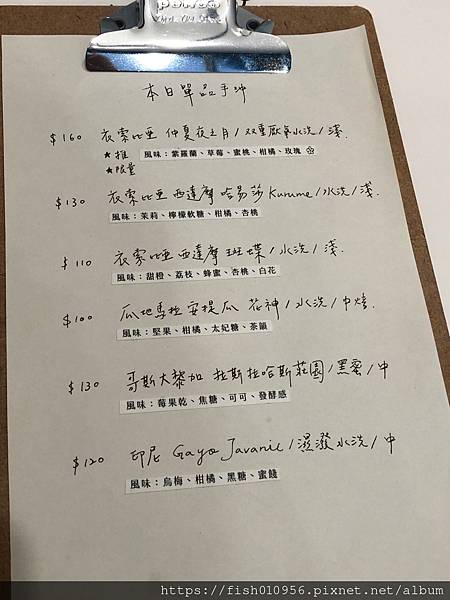 本日單品手沖
$160 衣索比亞 仲夏夜之月/双重厭氧水洗/淺.
★推 風味:紫羅蘭、草莓、蜜桃、柑橘、玫瑰
★限量
$130 衣索比亞 西達摩 哈易莎 Kurume/水洗/淺.
風味:茉莉、檸檬軟糖、柑橘、杏桃
$110 衣索比亞 西達摩 斑蝶/水洗/淺.
風味:甜橙、荔枝、蜂蜜、杏桃、白花
$100 瓜地馬拉 安提瓜 花神/水洗/中焙.
風味:堅果、柑橘、太妃糖、茶韻
$130 哥斯大黎加 拉斯拉哈斯莊園/黑蜜/中
風味:莓果乾、焦糖、可可、發酵感
$120 印尼 Gayo Javanic/濕潑水洗/中
風味:烏梅、柑橘、黑糖、蜜餞
https://fish010956.pixnet.net/album